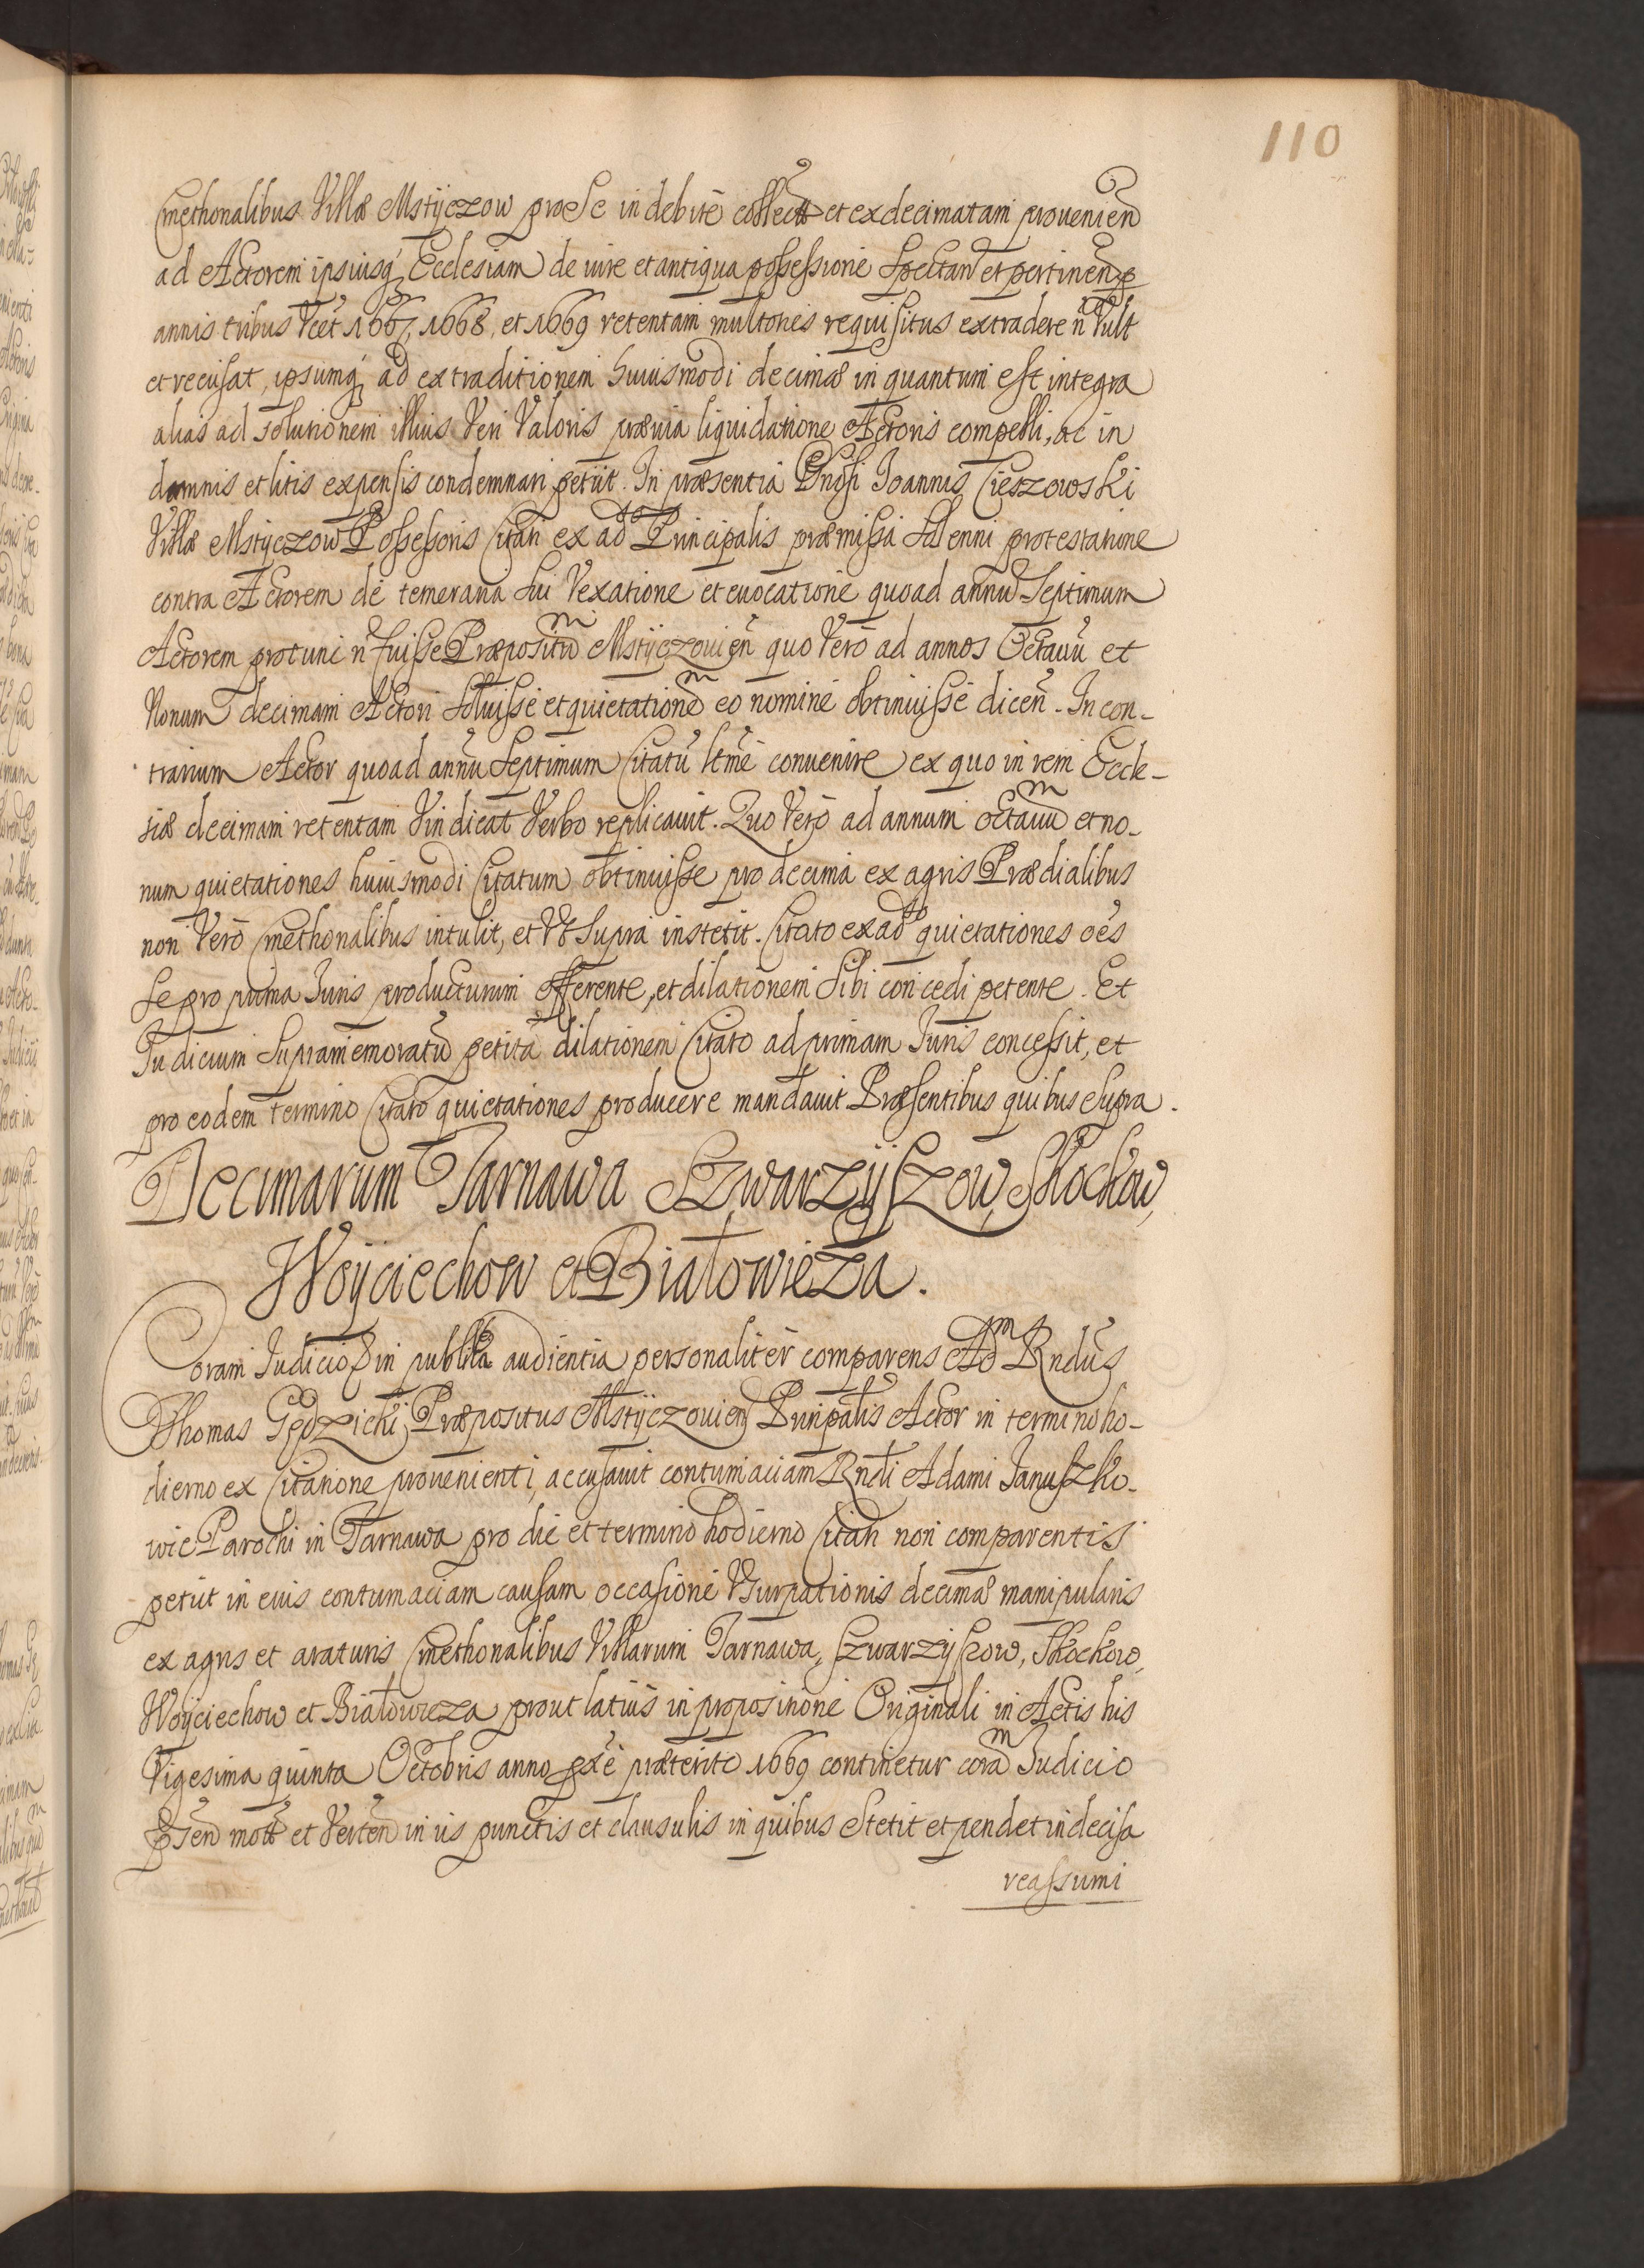 110
Cmethonalibus Villæ Mstyczow pro se indebitè collect et exdecimatam prouenien
ad Actorem ipsiusq Ecclesiam de iure et antiqua possessione Spectan et pertinen p
annis tribus Vcet 1667, 1668, et 1669 retentam multories requisitus extradere n Vult
et recusat, ipsumq ad extraditionem huiusmodi decimæ in quantum est integra
alias ad Solutionem illius Veri Valoris præuia liquidatione Actoris compelli, ac in
damnis et litis expensis condemnari petijt. In præsentia Gnosi Joannis Cieszowski
Villæ Mstyczow Possessoris Citati ex ad Principalis præmissa Solenni protestatione
contra Actorem de temeraria Sui Vexatione et euocatione quoad annu Septimum
Actorem pro tunc n fuisse Præpositum Mstyczouien quo Verò ad annos Octauu et
Nonum decimam Actori Soluisse et quietationem eo nomine obtinuisse dicen. In con-
trarium Actor quoad annu Septimum Citatu ltmè conuenire ex quo in rem Eccle-
siæ decimam retentam Vindicat Verbo replicauit. Quo Verò ad annum octauum et no-
num quietationes huiusmodi Citatum obtinuisse pro decima ex agris Prædialibus
non Verò Cmethonalibus intulit, et Vt Supra institit. Citato ex ad quietationes oes
Se pro prima Juris producturum offerente, et dilationem Sibi concedi petente. Et
Judicium Supramemoratu petita dilationem Citato ad primam Juris concessit, et
pro eodem termino Citato quietationes producere mandauit Præsentibus quibus Supra.
Decimarum Tarnawa Szwarzyszow, Skockow,
Woyciechow et Białowieża.
Coram Judicio in publica audientia personalitèr comparens Adm Rndus
Thomas Gędzicki Præpositus Mstyczouien Prinpalis Actor in termino ho-
dierno ex Citatione prouenienti, accusauit contumaciam Rndi Adami Januszko-
wic Parochi in Tarnawa pro die et termino hodierno Citati non comparentis
petijt in eius contumaciam causam occasione Vsurpationis decimæ manipularis
ex agris et araturis Cmethonalibus Villarum Tarnawa, Szwarzyszow, Skockow,
Woyciechow et Białowieza prout latius in propositione Originali in Actis his
Vigesima quinta Octobris anno pxè præterito 1669 continetur coram Judicio
psen mott et Verten in iis punctis et clausulis in quibus Stetit et pendet indecisa
reassumi